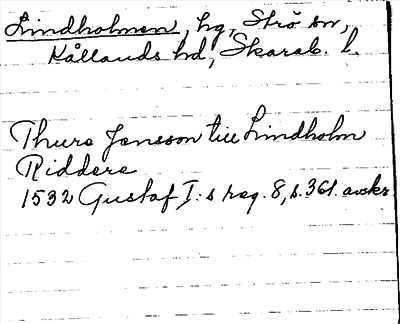 Lindholmen, hg, Strö sn,
Kållands hd, Skarab. l.
Thure Jonsson till Lindholm
Riddere
1532 Gustaf I:s reg. 8, s. 361. avskr.